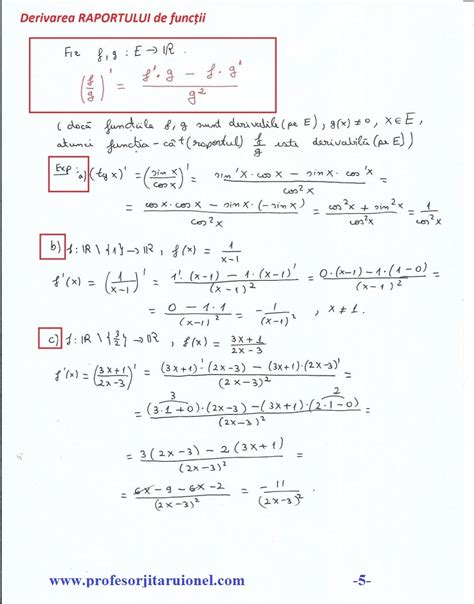 Derivarea RAPORTULUI de funcții
Fie f, g : E → ℝ.
(f/g)' = (f'·g − f·g')/g²
(dacă funcțiile f, g sunt derivabile (pe E), g(x) ≠ 0, x ∈ E,
atunci funcția-cât (raportul) f/g este derivabilă (pe E))
Exp: a) (tg x)' = (sin x/cos x)' = (sin'x · cos x − sin x · cos'x)/cos²x
= (cos x · cos x − sin x · (−sin x))/cos²x = (cos²x + sin²x)/cos²x = 1/cos²x
b) f: ℝ \ {1} → ℝ, f(x) = 1/(x−1)
f'(x) = (1/(x−1))' = (1'·(x−1) − 1·(x−1)')/(x−1)² = (0·(x−1) − 1·(1−0))/(x−1)²
= (0 − 1·1)/(x−1)² = − 1/(x−1)², x ≠ 1.
c) f: ℝ \ {3/2} → ℝ, f(x) = (3x+1)/(2x−3)
f'(x) = ((3x+1)/(2x−3))' = ((3x+1)'·(2x−3) − (3x+1)·(2x−3)')/(2x−3)² =
3 2
= ((3·1+0)·(2x−3) − (3x+1)·(2·1−0))/(2x−3)² =
= (3(2x−3) − 2(3x+1))/(2x−3)² =
= (6x − 9 − 6x − 2)/(2x−3)² = −11/(2x−3)².
www.profesorjitaruionel.com -5-